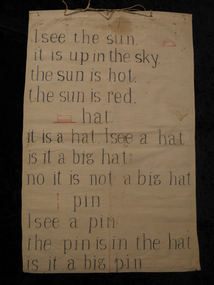 I see the sun.
it is up in the sky.
the sun is hot.
the sun is red.
hat.
it is a hat. I see a hat
is it a big hat.
no it is not a big hat
pin
I see a pin
the pin is in the hat
is it a big pin